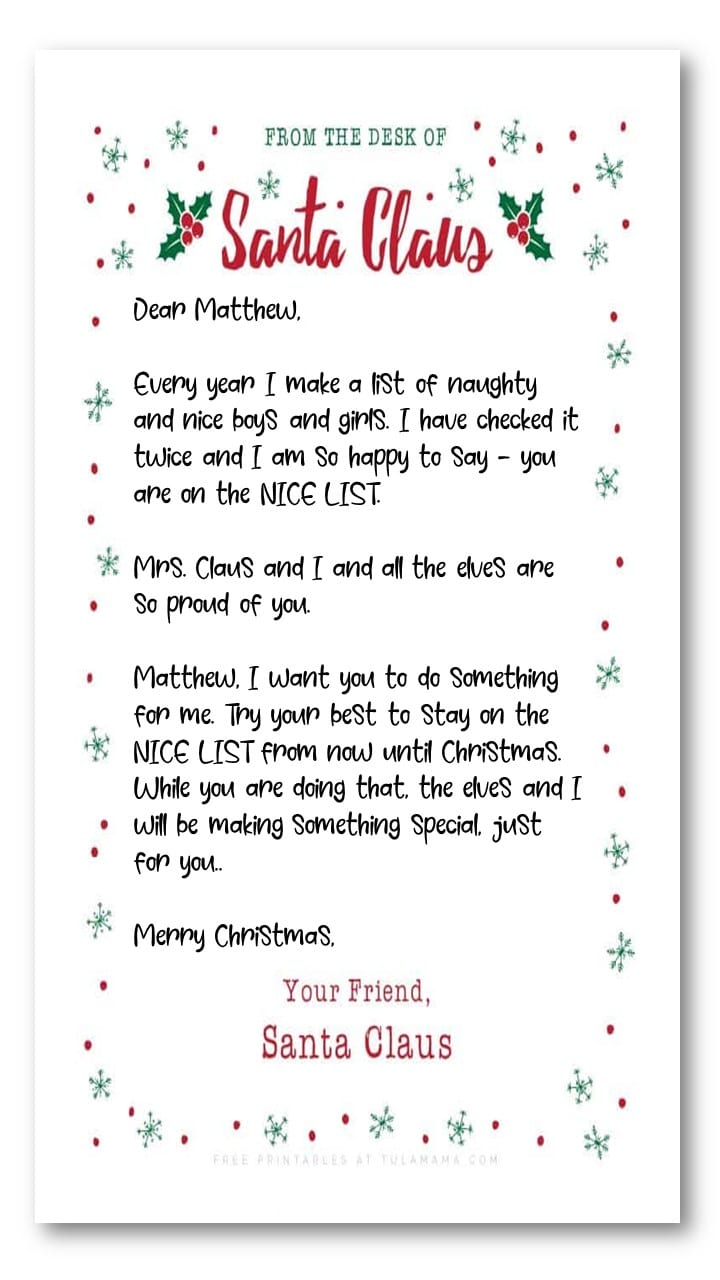 FROM THE DESK OF
Santa Claus
Dear Matthew,
Every year I make a list of naughty
and nice boys and girls. I have checked it
twice and I am so happy to say - you
are on the NICE LIST.
Mrs. Claus and I and all the elves are
so proud of you.
Matthew, I want you to do something
for me. Try your best to stay on the
NICE LIST from now until Christmas.
While you are doing that, the elves and I
will be making something special, just
for you..
Merry Christmas,
Your Friend,
Santa Claus
FREE PRINTABLES AT TULAMAMA.COM